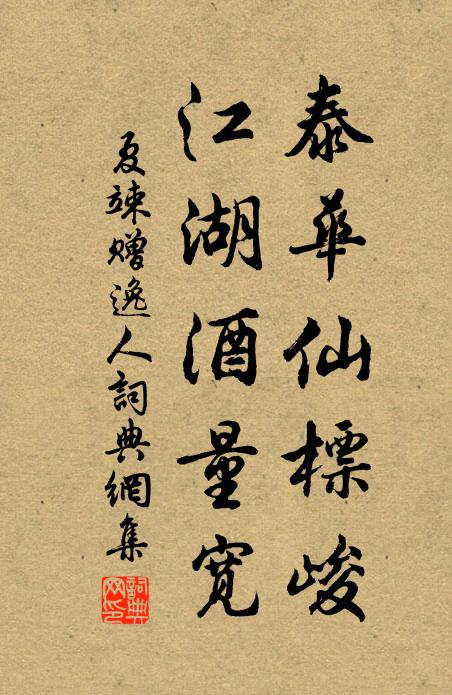 泰華仙標峻
江湖酒量寬
夏竦贈逸人詞典網集
詞典网印